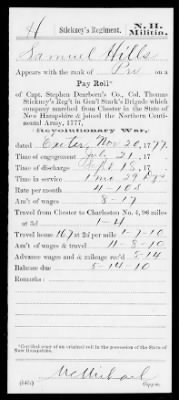 H Stickney's Regiment. N. H. Militia.
Samuel Hills
Appears with the rank of Pri on a
Pay Roll*
of Capt. Stephen Dearborn's Co., Col. Thomas
Stickney's Reg't in Gen'l Stark's Brigade which
company marched from Chester in the State of
New Hampshire & joined the Northern Conti-
nental Army, 1777,
Revolutionary War,
dated Exeter, Nov 20, 1777.
Time of engagement July 21, 17
Time of discharge Sept 18, 17
Time in service 1 mo. 29 dys
Rate per month 4-10 s
Am't of wages 8-17
Travel from Chester to Charleston No. 4, 96 miles
at 3d 1-4
Travel home 167 at 2d per mile 1-7-10
Am't of wages & travel 11-8-10
Advance wages and & mileage rec'd 5-14
Balance due 5-14-10
Remarks:
*Certified copy of an original roll in the possession of the State of
New Hampshire.
McMichael
(545) Copyist.